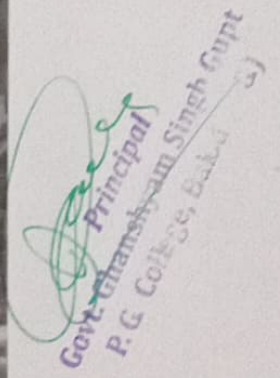 Principal
Govt. Ghanshyam Singh Gupt
P. G. College,